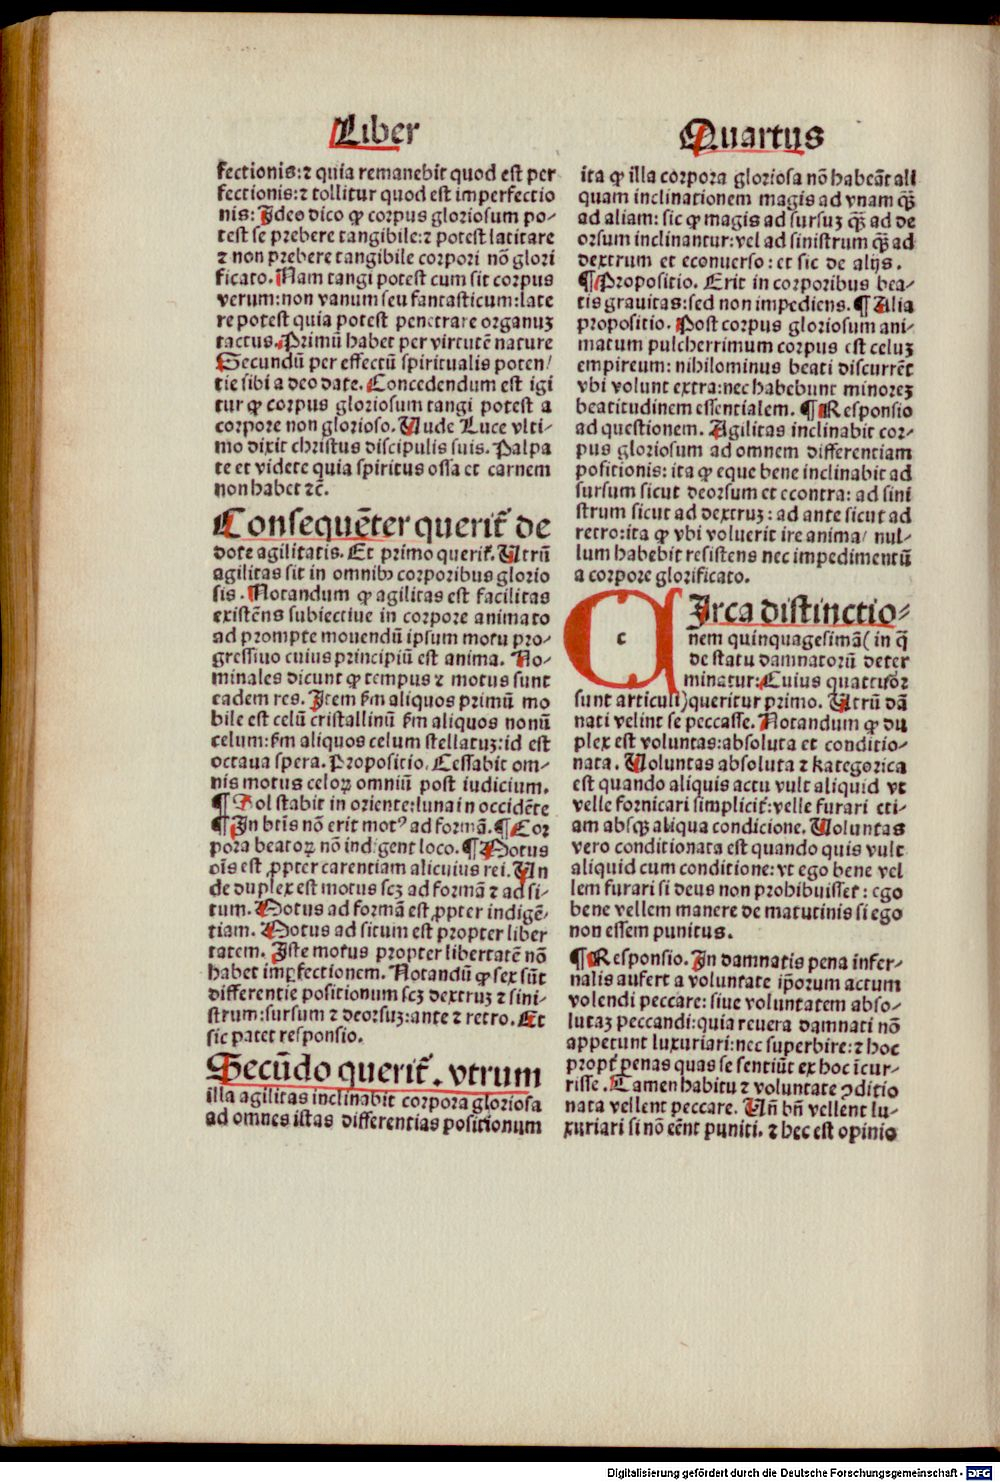 Liber
Quartus
fectionis: ⁊ quia remanebit quod est per
fectionis: ⁊ tollitur quod est imperfectio
nis: Ideo dico ꝙ corpus gloriosum po-
test se prebere tangibile: ⁊ potest latitare
⁊ non prebere tangibile corpori nō glori
ficato. Nam tangi potest cum sit corpus
verum: non vanum seu fantasticum: late
re potest quia potest penetrare organuꝫ
tactus. Primū habet per virtutē nature
Secundū per effectū spiritualis poten/
tie sibi a deo date. Concedendum est igi
tur ꝙ corpus gloriosum tangi potest a
corpore non glorioso. Vude Luce vlti-
mo dixit christus discipulis suis. Palpa
te et videte quia spiritus ossa et carnem
non habet ⁊c̄.
Consequēter querit̄ de
dote agilitatis. Et primo querit̄. Vtrū
agilitas sit in omnibꝰ corporibus glorio
sis. Notandum ꝙ agilitas est facilitas
existēns subiectiue in corpore animato
ad prompte mouendū ipsum motu pro-
gressiuo cuius principiū est anima. No-
minales dicunt ꝙ tempus ⁊ motus sunt
eadem res. Item ẜm aliquos primū mo
bile est celū cristallinū ẜm aliquos nonū
celum: ẜm aliquos celum stellatuꝫ: id est
octaua spera. Propositio. Cessabit om-
nis motus celoꝝ omniū post iudicium.
¶ Sol stabit in oriente: luna in occidēte
¶ In btīs nō erit motꝰ ad formā. ¶ Cor
pora beatoꝝ nō indigent loco. ¶ Motus
oīs est ꝓpter carentiam alicuius rei. Vn
de duplex est motus scꝫ ad formā ⁊ ad si-
tum. Motus ad formā est ꝓpter indigē-
tiam. Motus ad situm est propter liber
tatem. Iste motus propter libertatē nō
habet imꝑfectionem. Notandū ꝙ sex sūt
differentie positionum scꝫ dextruꝫ ⁊ sini-
strum: sursum ⁊ deorsuꝫ: ante ⁊ retro. Et
sic patet responsio.
Secūdo querit̄. vtrum
illa agilitas inclinabit corpora gloriosa
ad omnes istas differentias positionum
ita ꝙ illa corpora gloriosa nō habeāt ali
quam inclinationem magis ad vnam qꝫ̄
ad aliam: sic ꝙ magis ad sursuꝫ qꝫ̄ ad de
orsum inclinantur: vel ad sinistrum qꝫ̄ ad
dextrum et econuerso: et sic de alijs.
¶ Propositio. Erit in corporibus bea-
tis grauitas: sed non impediens. ¶ Alia
propositio. Post corpus gloriosum ani-
matum pulcherrimum corpus est celuꝫ
empireum: nihilominus beati discurrēt
vbi volunt extra: nec habebunt minoreꝫ
beatitudinem essentialem. ¶ Responsio
ad questionem. Agilitas inclinabit cor-
pus gloriosum ad omnem differentiam
positionis: ita ꝙ eque bene inclinabit ad
sursum sicut deorsum et econtra: ad sini
strum sicut ad dextruꝫ: ad ante sicut ad
retro: ita ꝙ vbi voluerit ire anima/ nul-
lum habebit resistens nec impedimentū
a corpore glorificato.
c
CIrca distinctio-
nem quinquagesimā( in q̄
de statu damnatorū deter
minatur: Cuius quattuoꝛ
sunt articuli) queritur primo. Vtrū dā
nati velint se peccasse. Notandum ꝙ du
plex est voluntas: absoluta et conditio-
nata. Voluntas absoluta ⁊ kategorica
est quando aliquis actu vult aliquid vt
velle fornicari simplicit̄: velle furari eti-
am absqꝫ aliqua condicione. Voluntas
vero conditionata est quando quis vult
aliquid cum conditione: vt ego bene vel
lem furari si deus non prohibuisset: ego
bene vellem manere de matutinis si ego
non essem punitus.
¶ Responsio. In damnatis pena infer-
nalis aufert a voluntate ip̄orum actum
volendi peccare: siue voluntatem abso-
lutaꝫ peccandi: quia reuera damnati nō
appetunt luxuriari: nec superbire: ⁊ hoc
propt̄ penas quas se sentiūt ex hoc īcur-
risse. Tamen habitu ⁊ voluntate ꝯditio
nata vellent peccare. Vn̄ bn̄ vellent lu-
xuriari si nō eēnt puniti. ⁊ hec est opinio
Digitalisierung gefördert durch die Deutsche Forschungsgemeinschaft - DFG